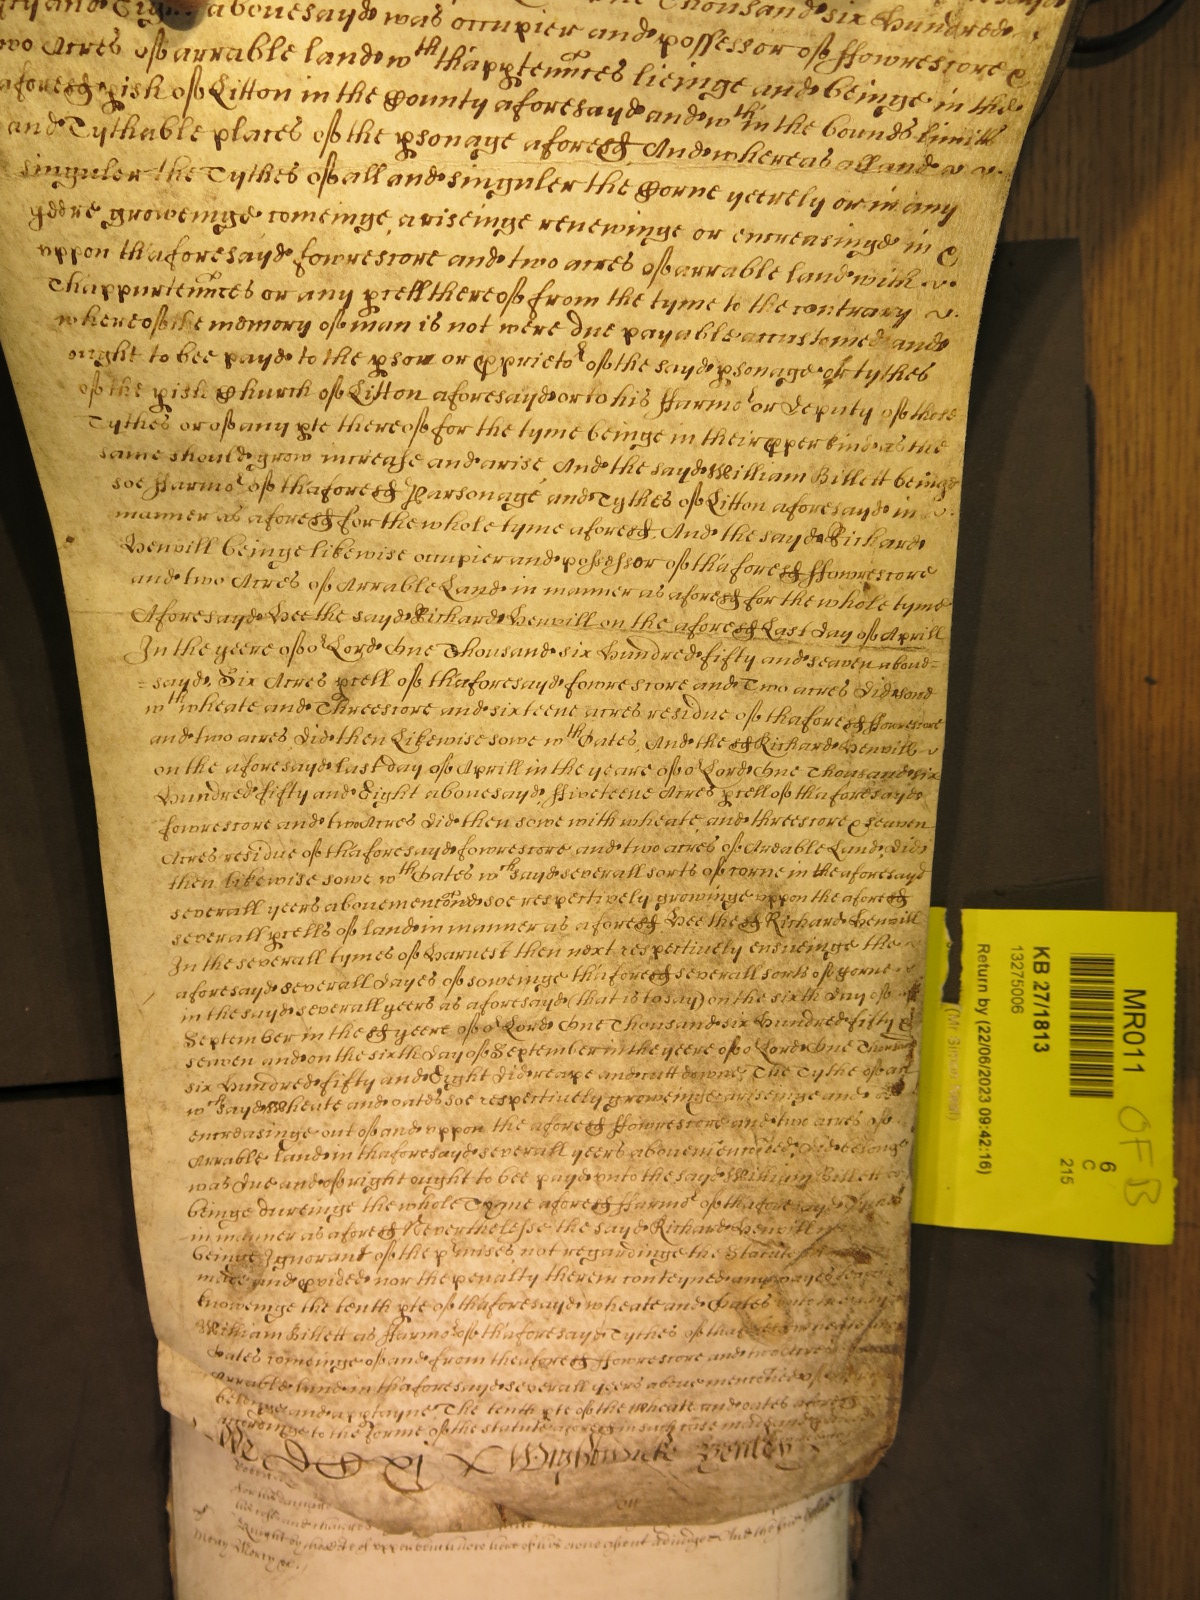 and Eight abovesayd was occupier and possessor off ffowrescore &
two Acres off arrable land wth thapptennces lieinge and beinge in the
aforesd pish off Litton in the County aforesayd and wthin the bounds limitts
and Tythable places off the psonage aforesd And whereas all and
singuler the Tythes off all and singuler the Corne yeerely or in any
yeere groweinge comeinge ariseinge renewinge or encreasinge in &
vppon thaforesayd fowrescore and two acres off arrable land with
Thappurtennces or any pcell thereoff from the tyme to the contrary
whereoff the memory off man is not were due payable accustomed and
ought to bee payd to the pson or ppprietor off the sayd psonage or tythes
off the pish Church off Litton aforesayd or to his ffarmor or Deputy off those
Tythes or off any pte thereoff for the tyme beinge in their pper kind as the
same should grow increase and arise And the sayd William Billett beinge
soe ffarmor off thaforesd Parsonage and Tythes off Litton aforesayd in
manner as aforesd for the whole tyme aforesd. And the sayd Richard
Henvill beinge likewise occupier and possessor off thaforesd ffowrescore
and two Acres off Arrable Land in manner as aforesd for the whole tyme
Aforesayd Hee the sayd Richard Henvill on the aforesd Last day off Aprill
In the yeere off or Lord One Thousand six Hundred fifty and seaven above=
=sayd, Six Acres pcell off thaforesayd fowre score and Two acres did sowe
wth wheate and Threescore and sixteene acres residue off thaforesd ffowrescore
and two acres did then Likewise sowe wth Oates, And the sd Richard Henvill
on the aforesayd last day off Aprill in the yeare off or Lord One Thousand six
Hundred fifty and Eight abovesayd, ffiveteene Acres pcell off thaforesayd
fowrescore and two Acres did then sowe with wheate and threescore & seaven
Acres residue off thaforesayd fowrescore and two acres off Areable Land did
then likewise sowe wth Oates wth sayd severall sorts off corne in the aforesayd
severall yeers abovemencond soe respectively growinge vppon the aforesd
severall pcells off land in manner as aforesd Hee the sd Richard Henvill
In the severall tymes off Harvest then next respectively ensueinge the
aforesayd severall dayes off soweinge thaforesd severall sorts off corne
in the sayd severall yeers as aforesayd (that is to say) on the sixth day off
September in the sd yeere off or Lord One Thousand six Hundred fifty &
seaven and on the sixth day off September in the yeere off or Lord One Thousand
six Hundred fifty and Eight did reape and cutt downe, The Tythe off all
wth sayd Wheate and oates soe respectively groweinge ariseinge and
encreasinge out off and vppon the aforesd ffowrescore and two acres off
Arrable land in thaforesayd severall yeers abovemenconed did belonge
was due and off right ought to bee payd vnto the sayd William Billett
beinge dureinge the whole Tyme aforesd ffarmor off thaforesayd Tythes
in manner as aforesd Neverthelesse the sayd Richard Henvill
beinge Ignorant off the pmises not regardinge the Statute
made and pvided nor the penalty therein conteyned
knoweinge the tenth pte off thaforesayd wheate and Oates
William Billett as ffarmor off thaforesayd Tythes off that
Oates comeinge off and from the aforesd ffowrescore and two
Arrable land in thaforesayd severall yeers above menconed
belonge and apptayne The tenth pte off the wheate and oates aforesd
accordinge to the forme off the statute aforesd in such case made and
Wightwick Henley
MR011
KB 27/1813
13275006
Return by (22/06/2023 09:42:16)
6
C
215
OF B